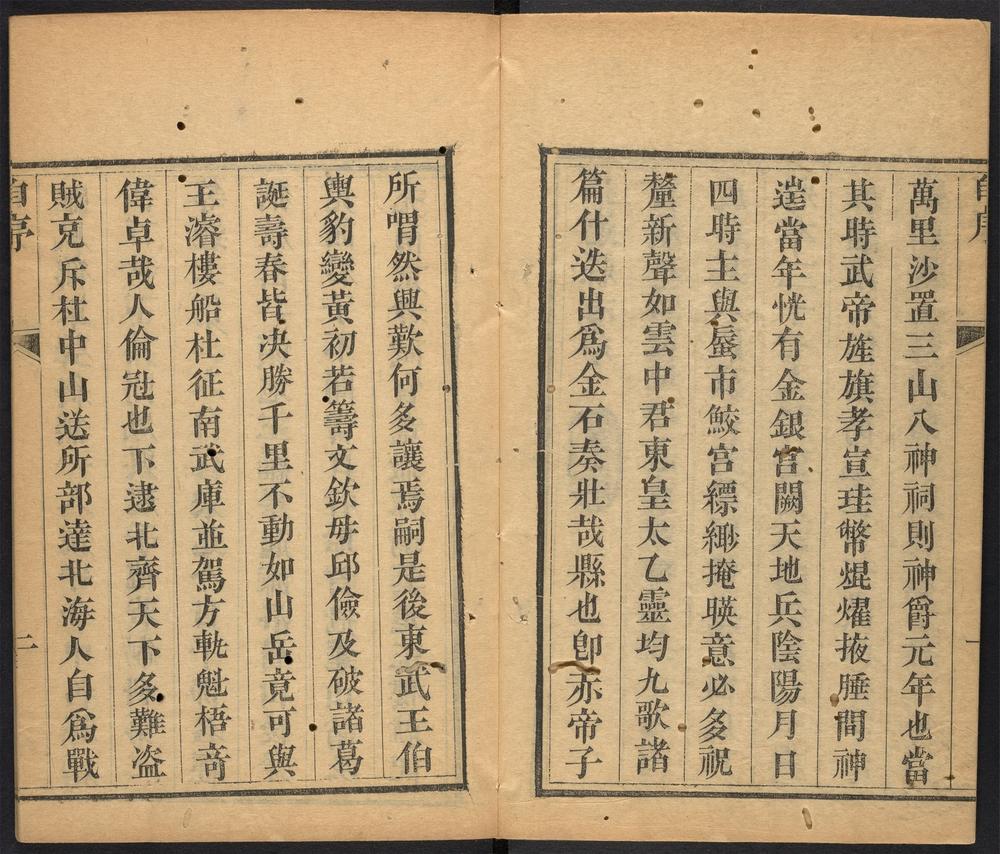 萬里沙置三山八神祠則神爵元年也當
其時武帝旌旗孝宣珪幣焜燿掖腄間神
逰當年恍有金銀宮闕天地兵陰陽月日
四時主與蜃市鮫宮縹緲掩暎意必多祝
釐新聲如雲中君東皇太乙靈均九歌諸
篇什迭出爲金石奏壯哉縣也卽亦帝子
所喟然興歎何多讓焉嗣是後東武王伯
輿豹變黃初若籌文欽毋邱儉及破諸葛
誕壽春皆决勝千里不動如山岳竟可與
王濬樓船杜征南武庫並駕方軌魁梧竒
偉卓哉人倫冠也下逮北齊天下多難盗
賊充斥杜中山送所部達北海人自爲戰
自序
二